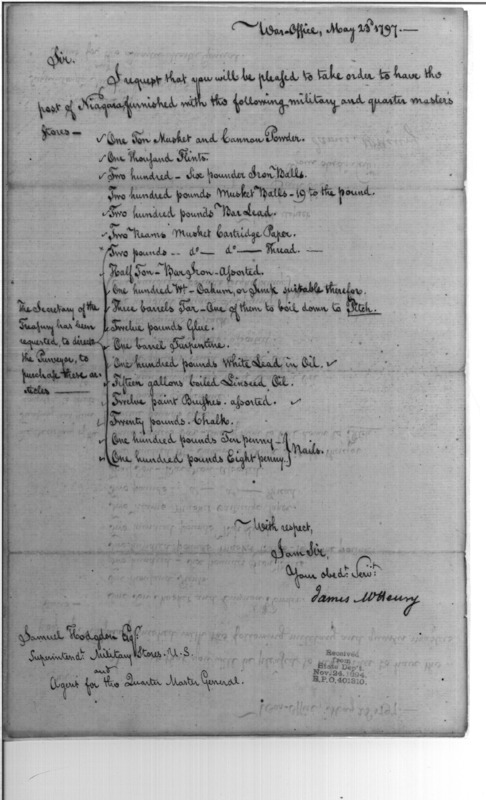 War-Office, May 23d 1797.—
Sir.
I request that you will be pleased to take order to have the
post of Niagara furnished with the following military and quarter master's
stores—
One Ton Musket and Cannon Powder.
One thousand Flints.
Two hundred - Six pounder Iron Balls.
Two hundred pounds Musket Balls - 19 to the pound.
Two hundred pounds Bar Lead.
Two Reams Musket Cartridge Paper.
Two pounds -- do — do — Thread. —
Half Ton - Bar Iron - assorted.
One hundred Wt - Oakum, or Junk suitable therefor.
Three barrels Tar - One of them to boil down to Pitch.
Twelve pounds Glue.
One barrel Turpentine.
One hundred pounds White Lead in Oil.
Fifteen gallons boiled Linseed Oil.
Twelve paint Brushes - assorted.
Twenty pounds - Chalk.
One hundred pounds Ten penny -
One hundred pounds Eight penny } Nails.
The Secretary of the
Treasury has been
requested, to direct
the Purveyor, to
purchase these ar-
ticles —
With respect,
I am Sir,
Your obedt. Servt.
James McHenry
Samuel Hodgdon Esqr.
Superintendt. Military Stores. U.S.
and
Agent for the Quarter Master General.
Received
from
State Dep't.
Nov. 24, 1894.
R.P.O. 401810.